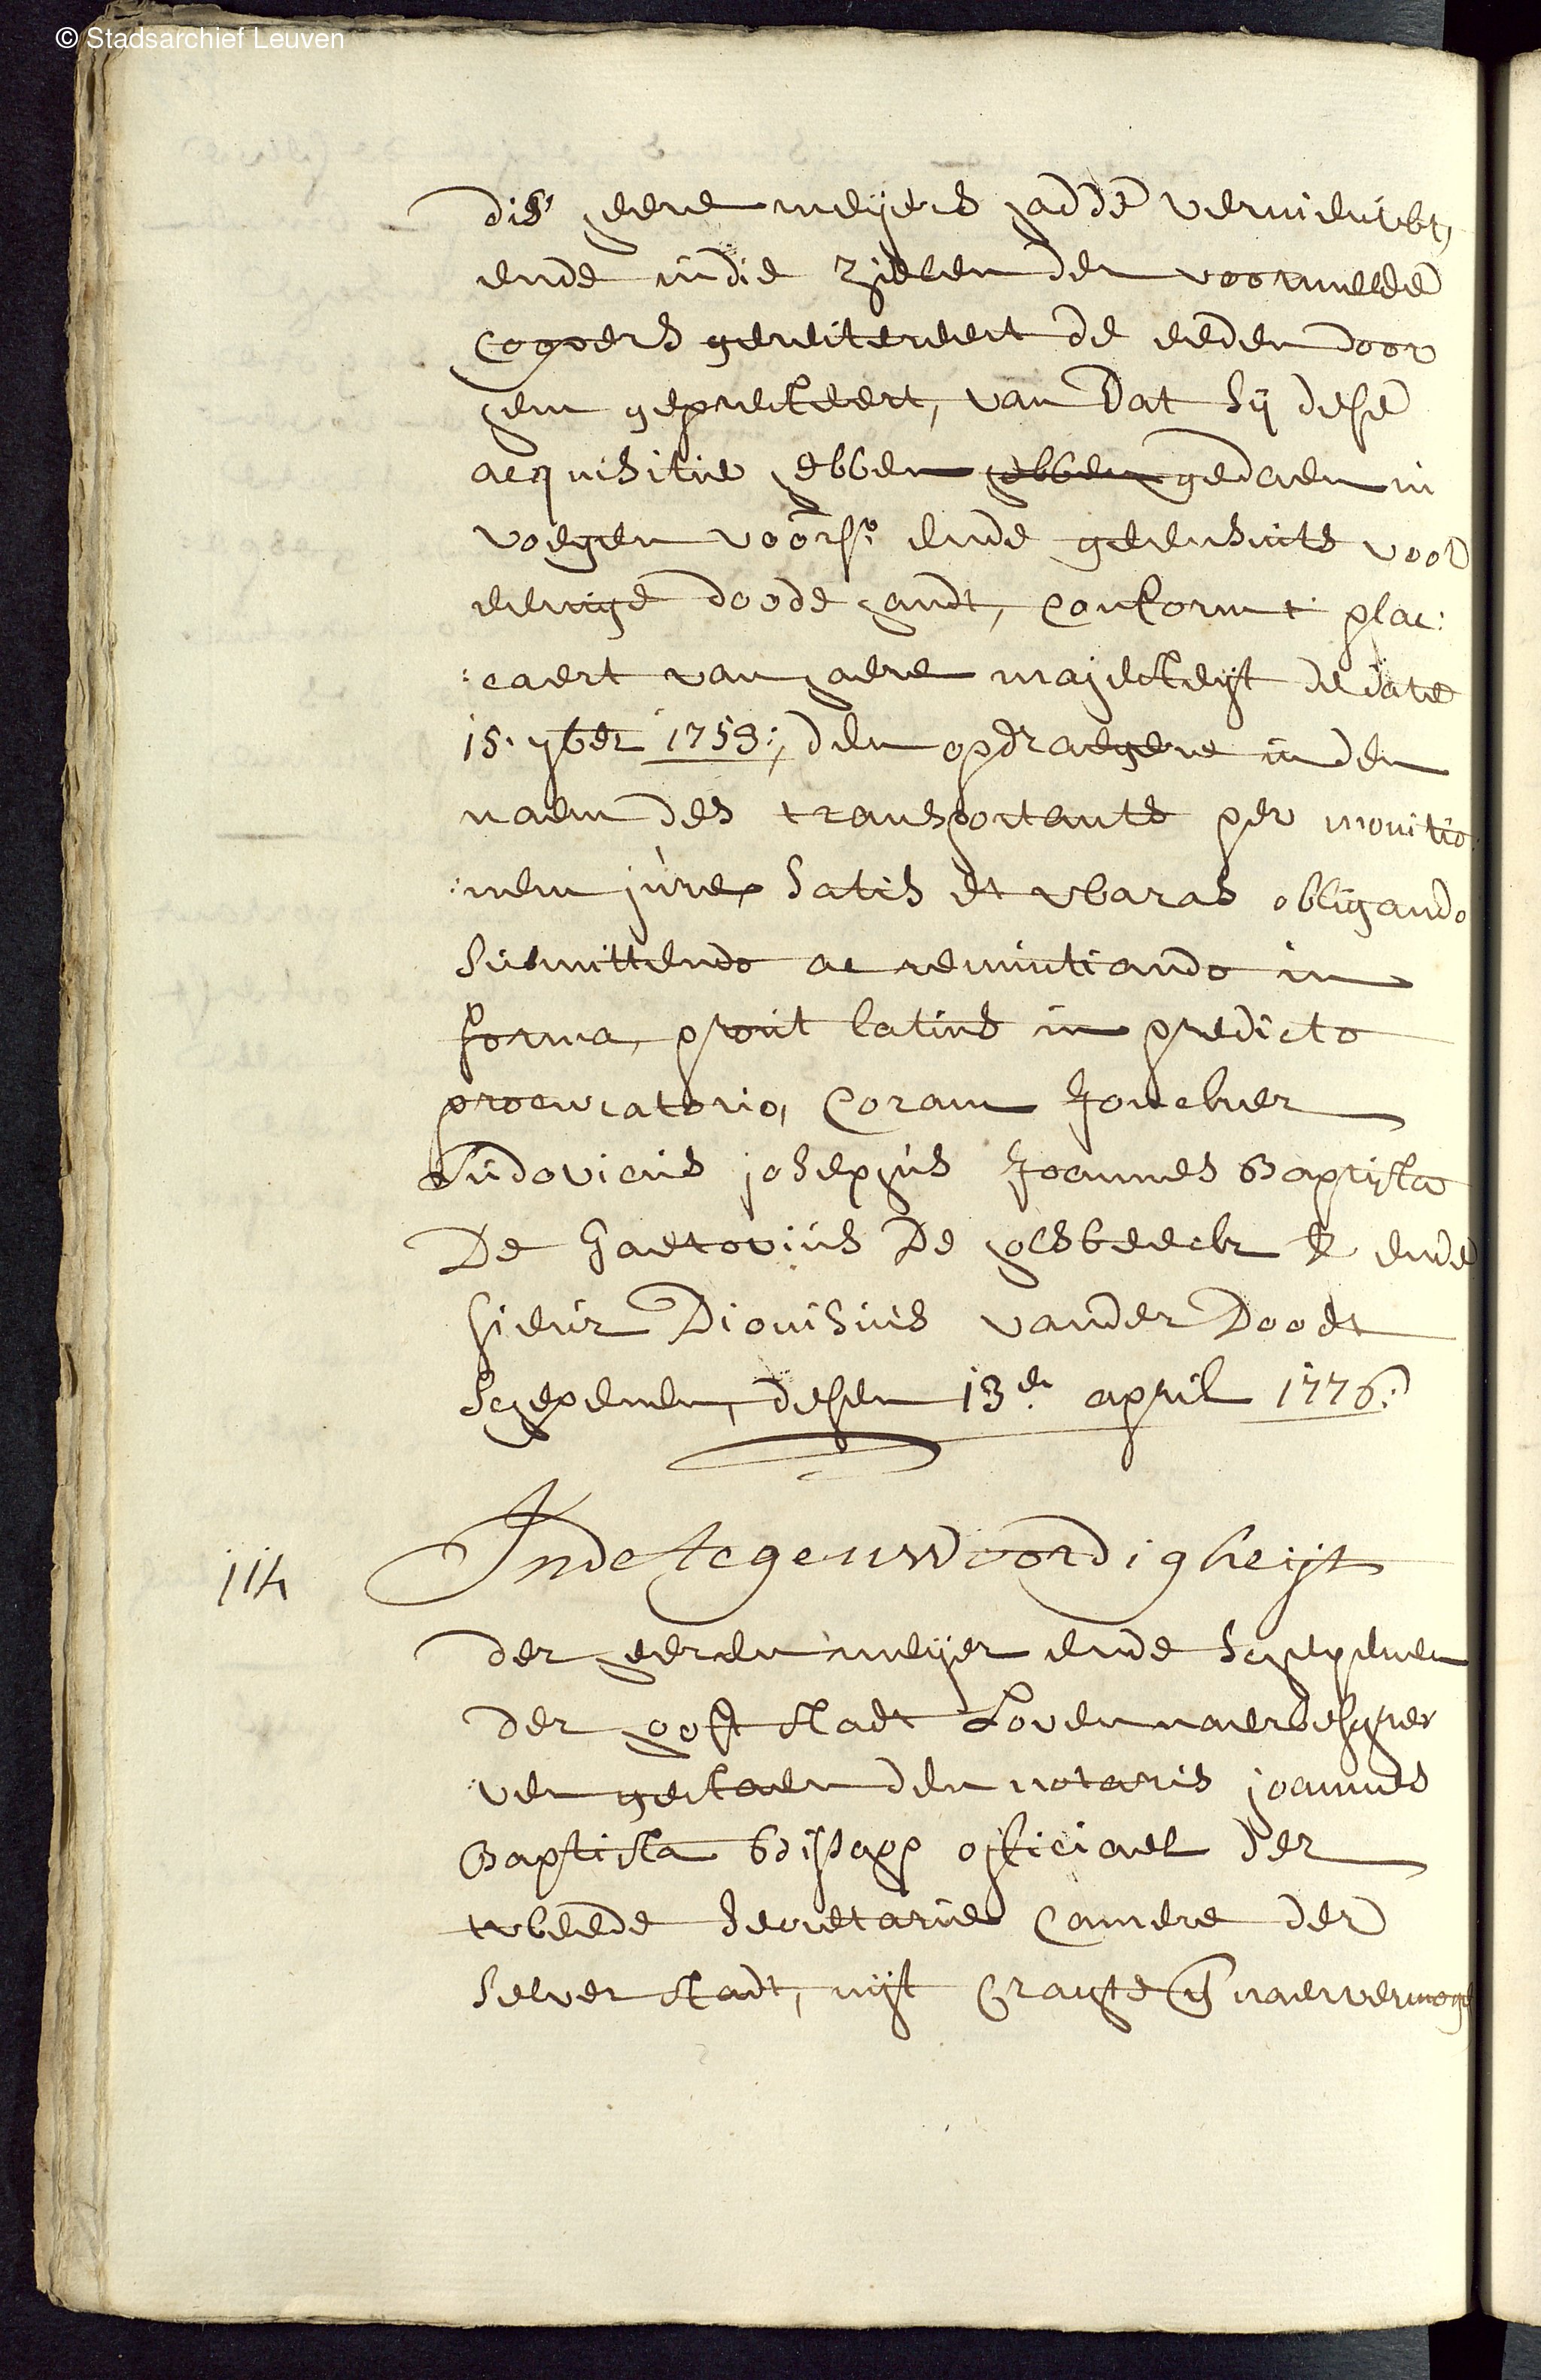 © Stadsarchief Leuven
dis' heere meyers hadde vernieuwt,
ende in die zielen der voormelde
coopers gereitereert de eeden door
hem gepresteert, van dat sij dese
acquisitie hebben hebben gedaen in
voegen voors. ende geensints voor
eenige doode handt, conform't plac:
:caert van haere majesteyt de date
15. 7ber 1753:, den opdraegere in den
naem des transportants per monitio:
:nem jure, satis et waras obligando
submittendo ac renuntiando in
forma, prout latius in predicto
procuratorio, coram Joncker
Ludovicus josephus Joannes Baptista
De Hertovius De hesbeeck & ende
sieur Dionisius vander Doodt
schepenen, desen 13en april 1776:
114 In de tegenwoordigheijt
der heeren meyer ende schepenen
der hooftstadt Loven naerbeschre
ven gestaen den notaris joannes
Baptista Bisschop officiael der
tweede secretarije camere der
selver stadt, uijt crachte en naervermoge